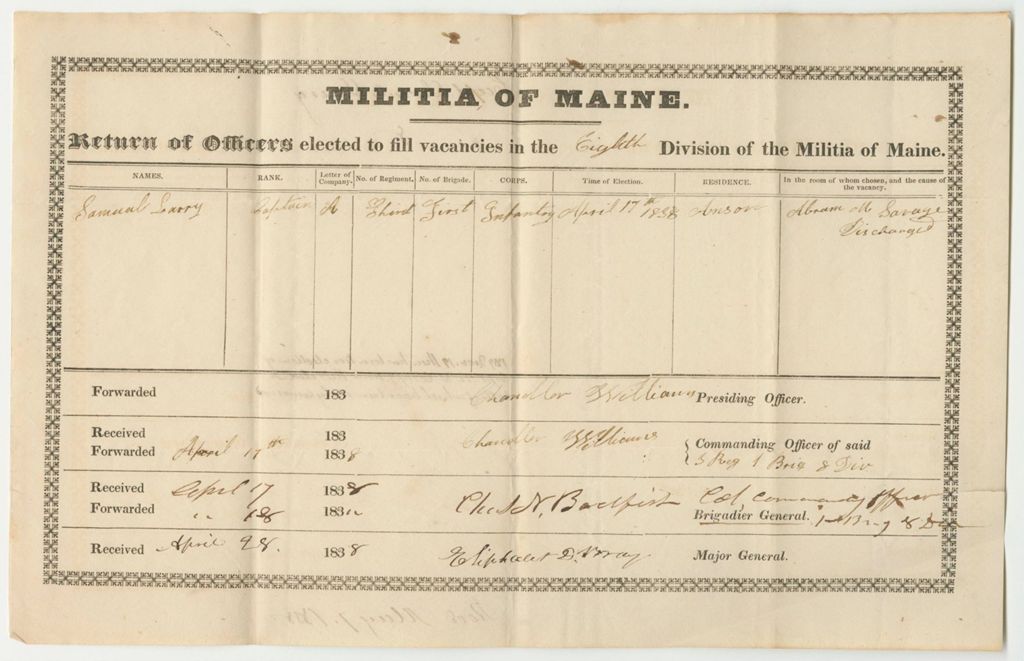 MILITIA OF MAINE.
Return of Officers elected to fill vacancies in the Eighth Division of the Militia of Maine.
NAMES. RANK. Letter of Company. No. of Regiment. No. of Brigade. CORPS. Time of Election. RESIDENCE. In the room of whom chosen, and the cause of the vacancy.
Samuel Larry Captain A Third First Infantry April 17th 1838 Anson Abram M Savage
Discharged
Forwarded 183 Chandler Williams Presiding Officer.
Received 183
Forwarded April 17th 1838 Chandler Williams Commanding Officer of said
Reg 1 Brig 8 Div
Received April 17 1838 Col Commanding Officer
Forwarded " 18 183" Chas N. Bodfish Brigadier General. 1st Brig 8 Div
Received April 28. 1838 Eliphalet D. Bray Major General.